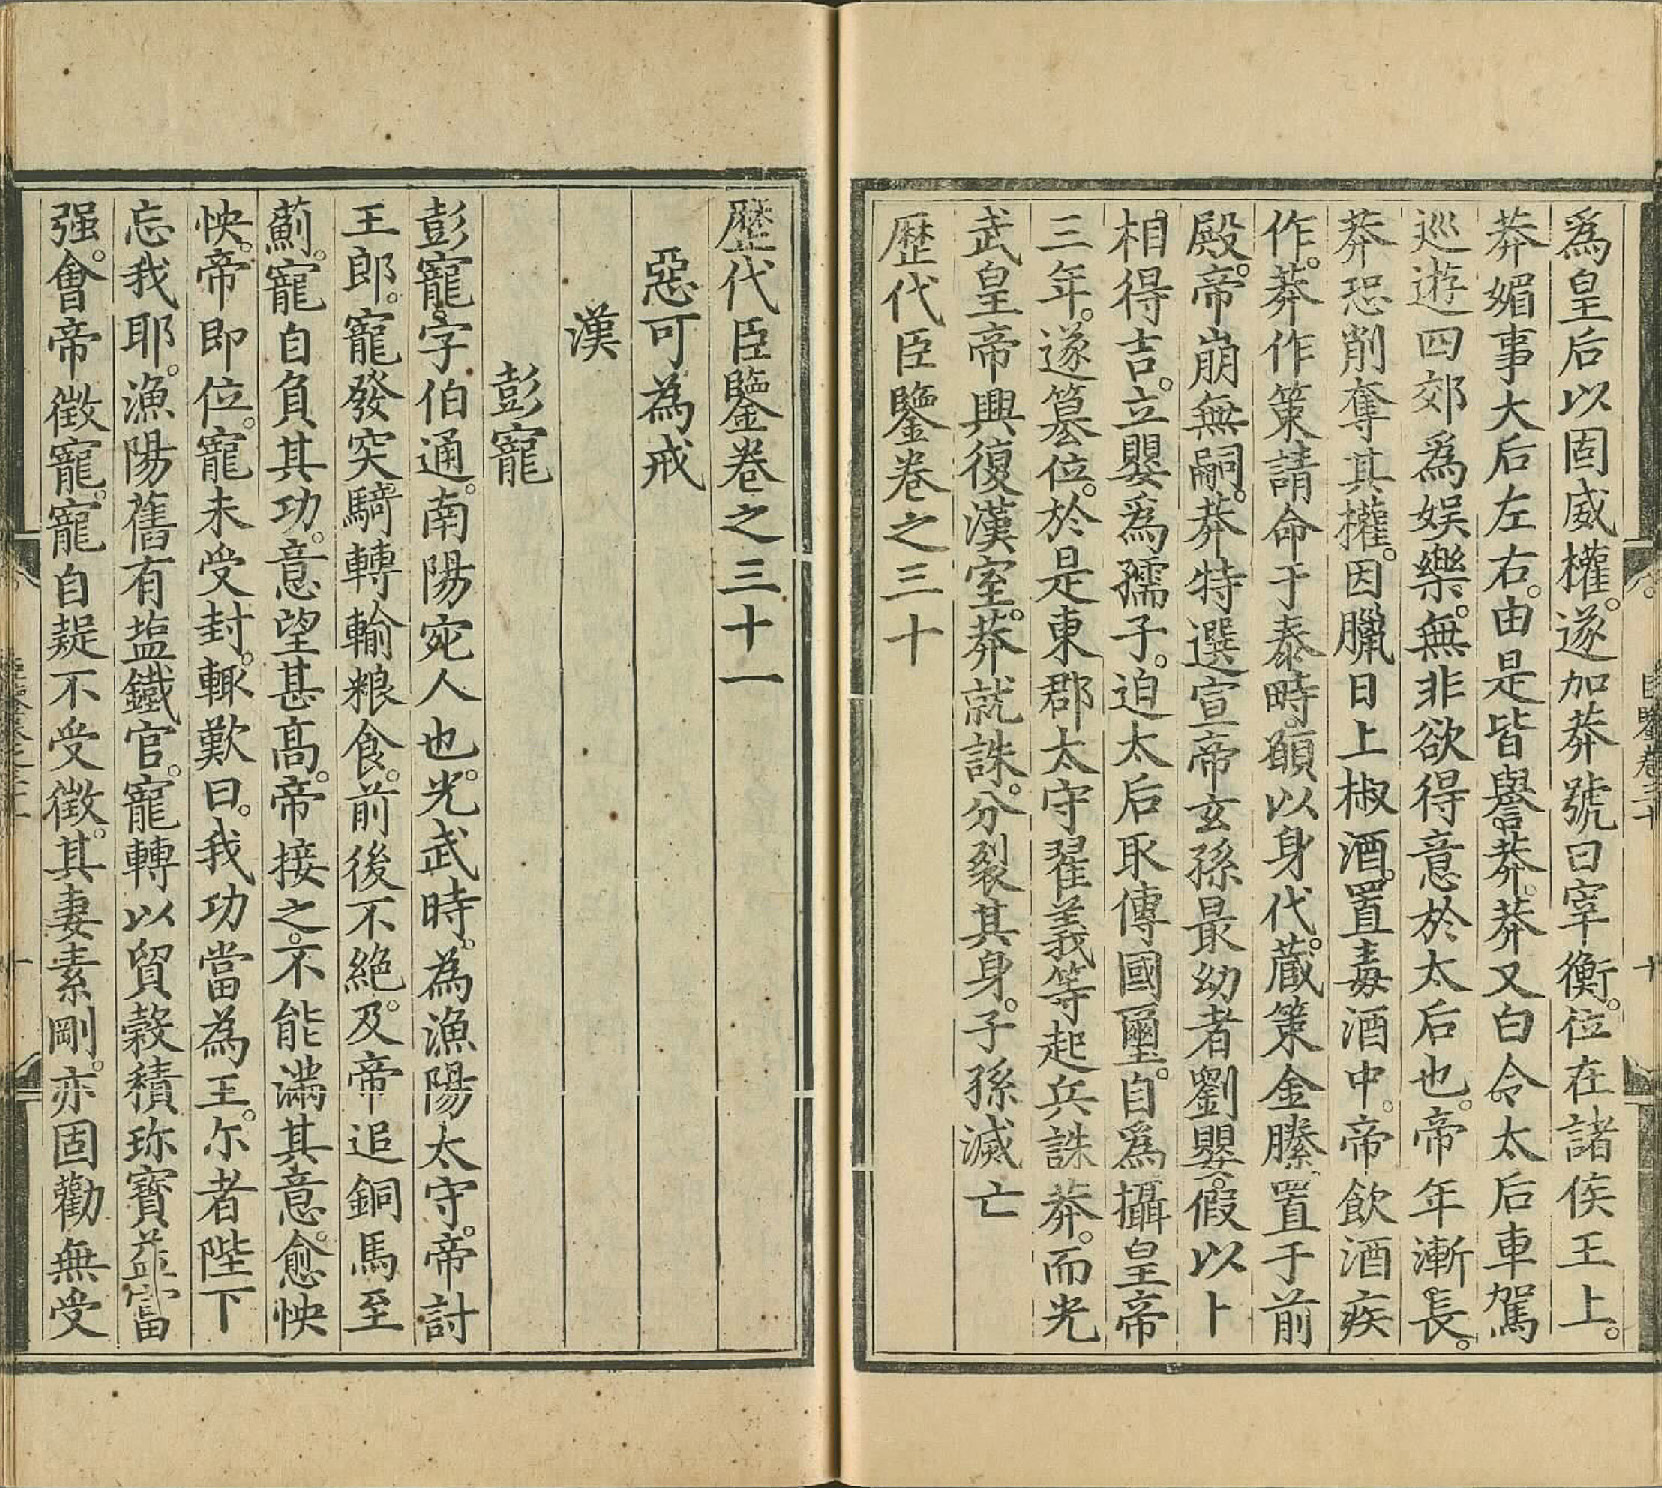 爲皇后以固威權。遂加莽號曰宰衡。位在諸侯王上。
莽媚事大后左右。由是皆譽莽。莽又白令太后車駕
巡遊四郊爲娱樂。無非欲得意於太后也。帝年漸長。
莽恐削奪其權。因臘日上椒酒。置毒酒中。帝飲酒疾
作。莽作策請命于泰畤。願以身代。蔵策金縢置于前
殿。帝崩無嗣。莽特選宣帝玄孫最幼者劉嬰。假以卜
相得吉。立嬰爲孺子。迫太后取傳國璽。自爲攝皇帝
三年。遂篡位。於是東郡太守翟義等起兵誅莽。而光
武皇帝興復漢室。莽就誅。分裂其身。子孫滅亡
歴代臣鑒卷之三十
歴代臣鑒卷之三十一
惡可為戒
漢
彭寵
彭寵字伯通。南陽宛人也。光武時。為漁陽太守。帝討
王郎。寵發突騎轉輸粮食。前後不絶。及帝追銅馬至
薊。寵自負其功。意望甚高。帝接之。不能滿其意。愈怏
怏。帝即位。寵未受封。輙歎曰。我功當為王。尓者陛下
忘我耶。漁陽舊有塩鐵官。寵轉以貿穀積珎寳益富
强。會帝徵寵。寵自疑不受徵。其妻素剛。亦固勸無受